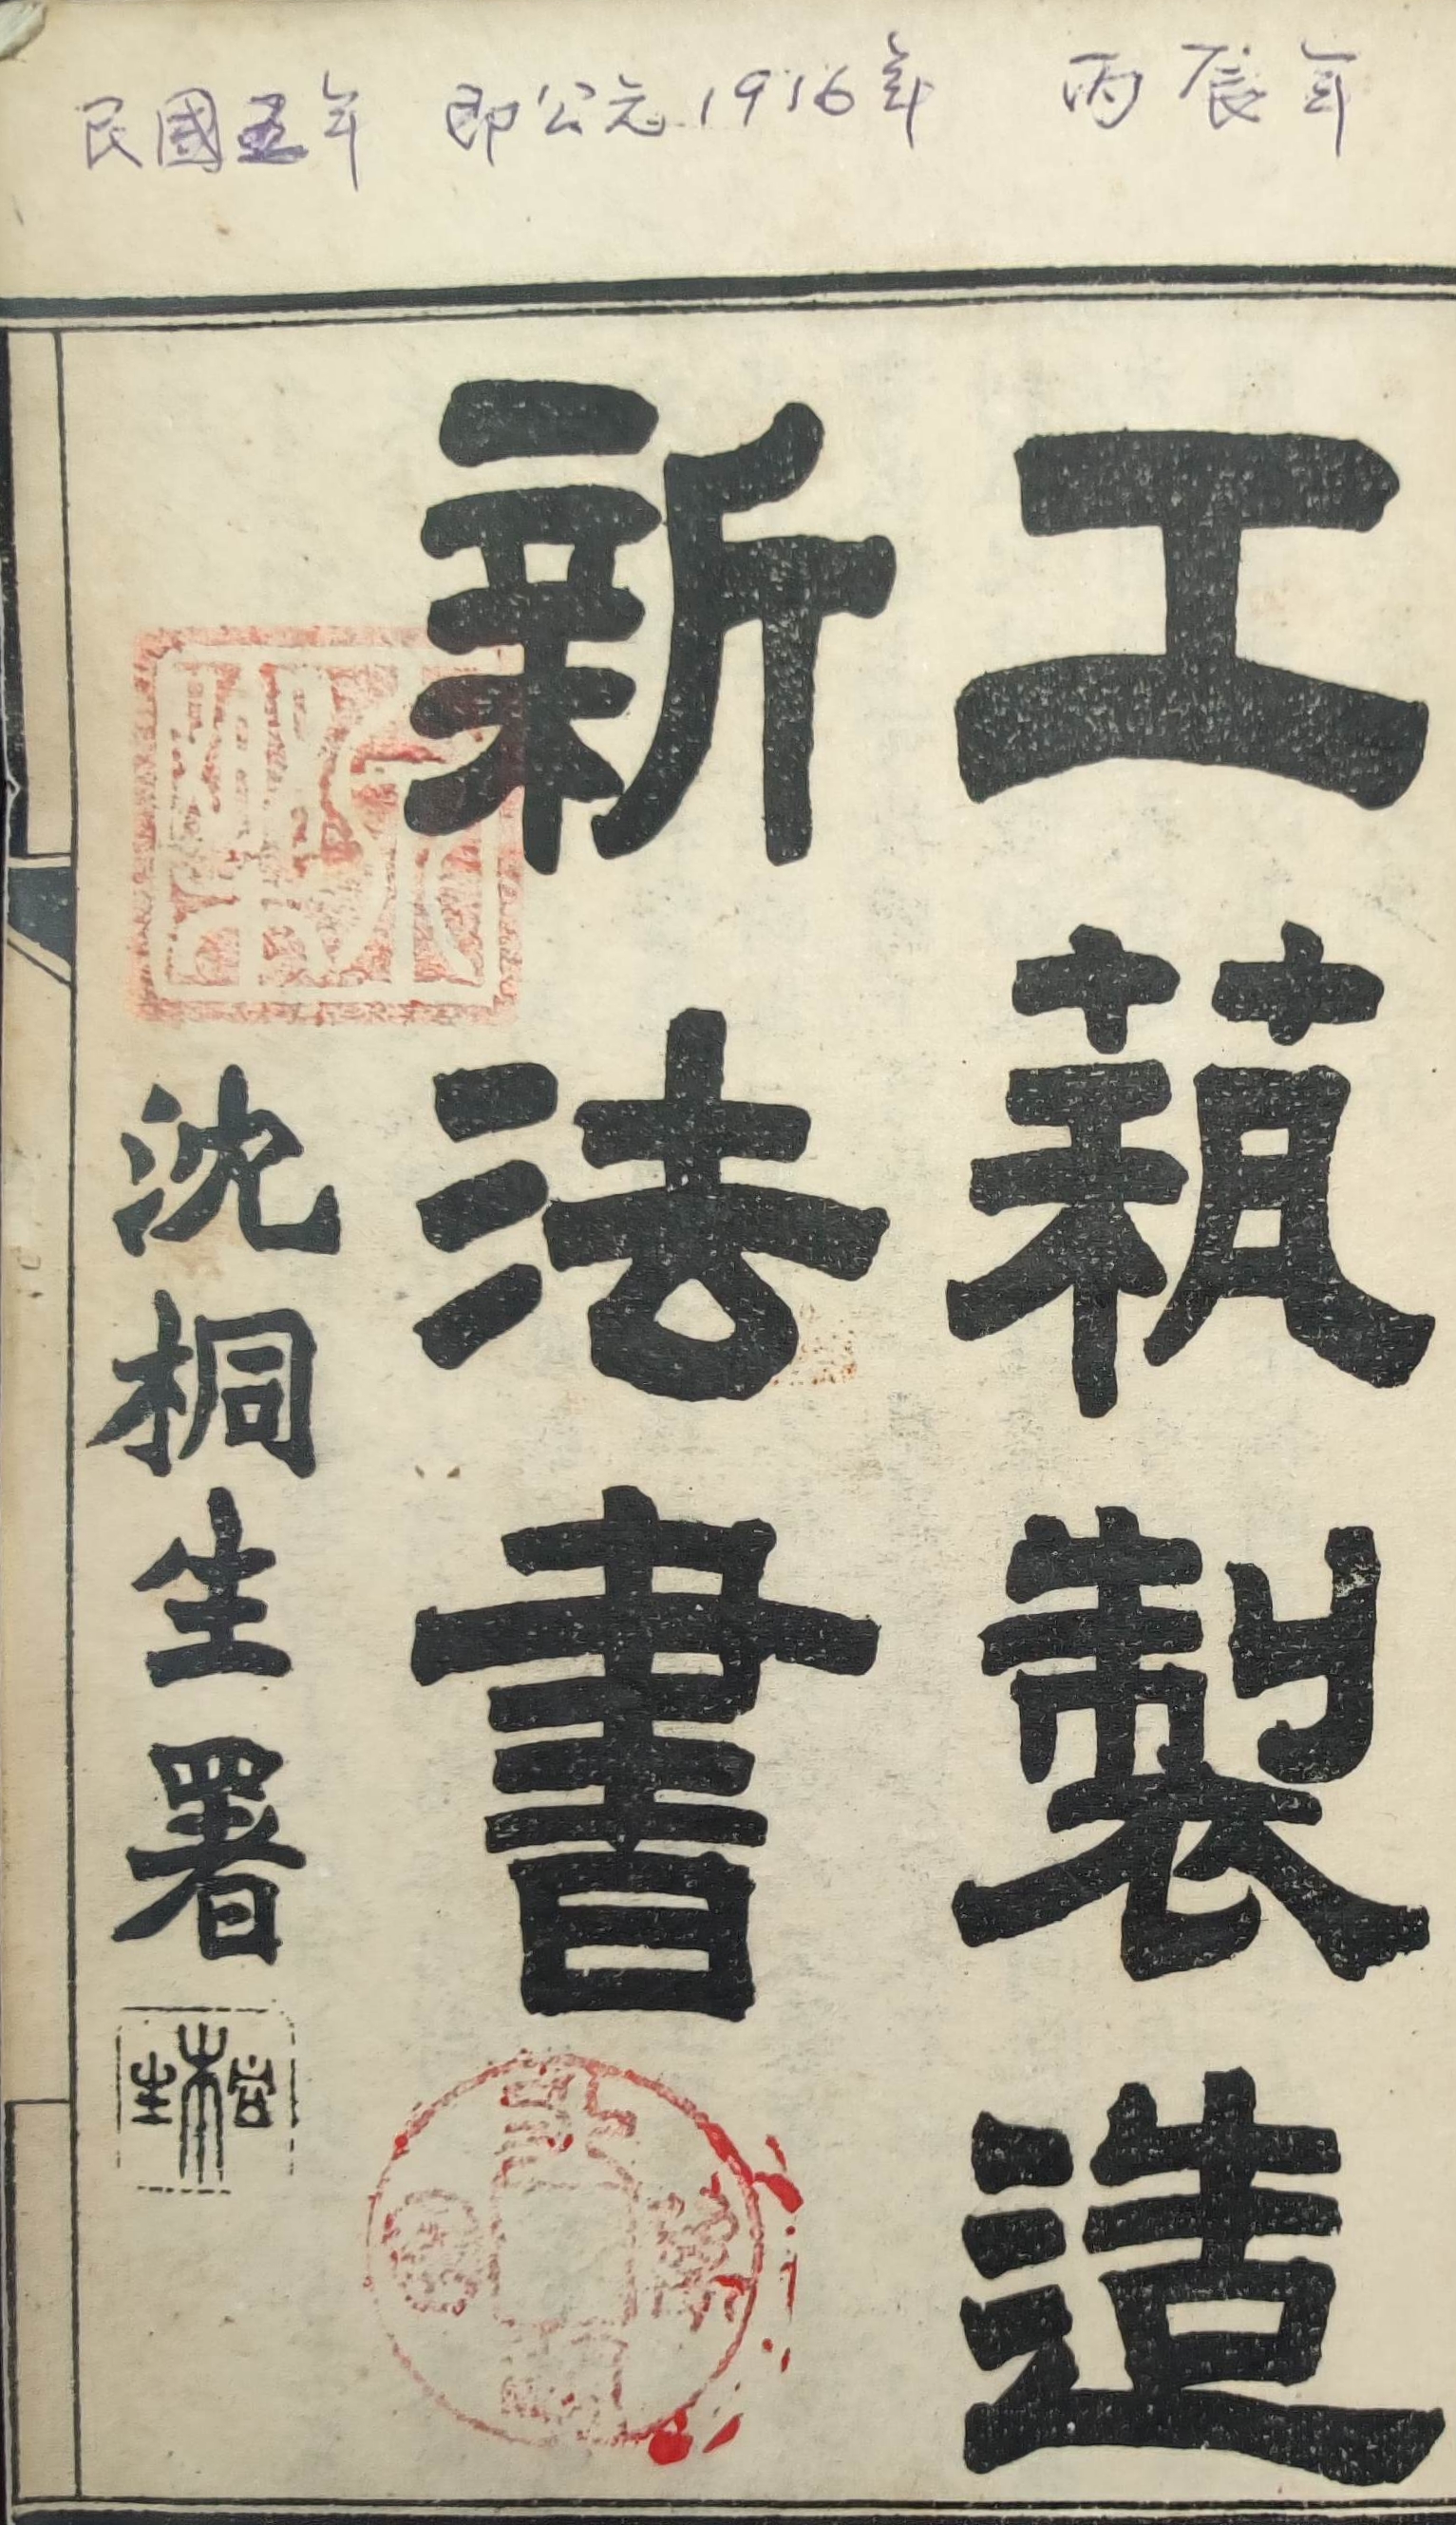 民國五年 即公元1916年 丙辰年
工蓺製造
新法書
沈桐生署
桐生